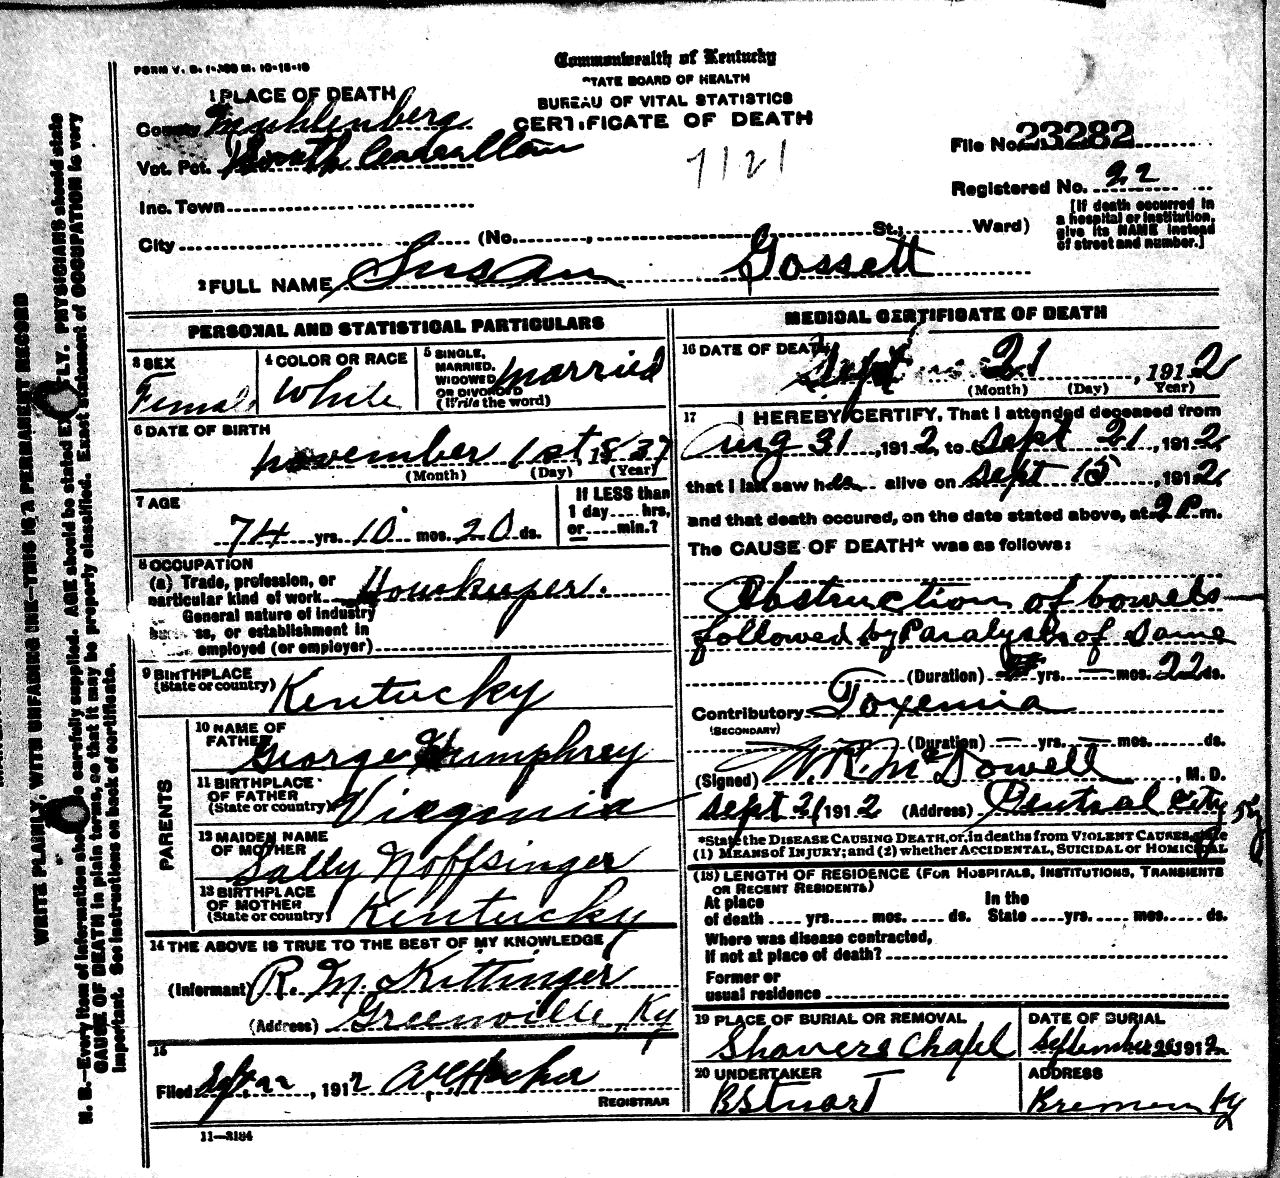 FORM V. S. 1-300 M. 10-15-10
Commonwealth of Kentucky
STATE BOARD OF HEALTH
BUREAU OF VITAL STATISTICS
CERTIFICATE OF DEATH
1 PLACE OF DEATH
County Muhlenberg
Vot. Pct. North
Inc. Town
City (No. , St.; Ward)
7121
File No. 23282
Registered No. 22
[If death occurred in
a hospital or institution,
give its NAME instead
of street and number.]
2 FULL NAME Susan Gossett
PERSONAL AND STATISTICAL PARTICULARS
3 SEX
Female
4 COLOR OR RACE
White
5 SINGLE,
MARRIED,
WIDOWED
OR DIVORCED
(Write the word)
Married
6 DATE OF BIRTH
November 1st, 1837
(Month) (Day) (Year)
7 AGE
74 yrs. 10 mos. 20 ds.
If LESS than
1 day .... hrs,
or ..... min.?
8 OCCUPATION
(a) Trade, profession, or
particular kind of work Housekeeper.
General nature of industry
business, or establishment in
employed (or employer)
9 BIRTHPLACE
(State or country) Kentucky
PARENTS
10 NAME OF
FATHER George Humphrey
11 BIRTHPLACE
OF FATHER
(State or country) Virginia
12 MAIDEN NAME
OF MOTHER Sally Noffsinger
13 BIRTHPLACE
OF MOTHER
(State or country) Kentucky
14 THE ABOVE IS TRUE TO THE BEST OF MY KNOWLEDGE
(Informant) R. M. Kittinger
(Address) Greenville, Ky
15
Filed Sept. 22, 1912
REGISTRAR
11—3184
MEDICAL CERTIFICATE OF DEATH
16 DATE OF DEATH
Sept 21, 1912
(Month) (Day) Year)
17 I HEREBY CERTIFY, That I attended deceased from
Aug 31, 1912, to Sept 21, 1912
that I last saw her alive on Sept 15, 1912
and that death occured, on the date stated above, at 2 P. m.
The CAUSE OF DEATH* was as follows:
Obstruction of bowels
followed by Paralysis of same
(Duration) yrs. — mos. 22 ds.
Contributory Toxemia
(SECONDARY)
(Duration) — yrs. — mos. ds.
(Signed) W. R. McDowell, M. D.
Sept 21 1912 (Address) Central City Ky
*State the DISEASE CAUSING DEATH, or, in deaths from VIOLENT CAUSES, state
(1) MEANS of INJURY; and (2) whether ACCIDENTAL, SUICIDAL or HOMICIDAL
(18) LENGTH OF RESIDENCE (FOR HOSPITALS, INSTITUTIONS, TRANSIENTS
OR RECENT RESIDENTS)
At place In the
of death .... yrs. .... mos. .... ds. State .... yrs. .... mos. .... ds.
Where was disease contracted,
If not at place of death?
Former or
usual residence
19 PLACE OF BURIAL OR REMOVAL
Shavers Chapel
DATE OF BURIAL
September 1912
20 UNDERTAKER
R Stuart
ADDRESS
Bremen Ky
WRITE PLAINLY, WITH UNFADING INK—THIS IS A PERMANENT RECORD
N. B.—Every item of information should be carefully supplied. AGE should be stated EXACTLY. PHYSICIANS should state
CAUSE OF DEATH in plain terms, so that it may be properly classified. Exact statement of OCCUPATION is very
important. See instructions on back of certificate.